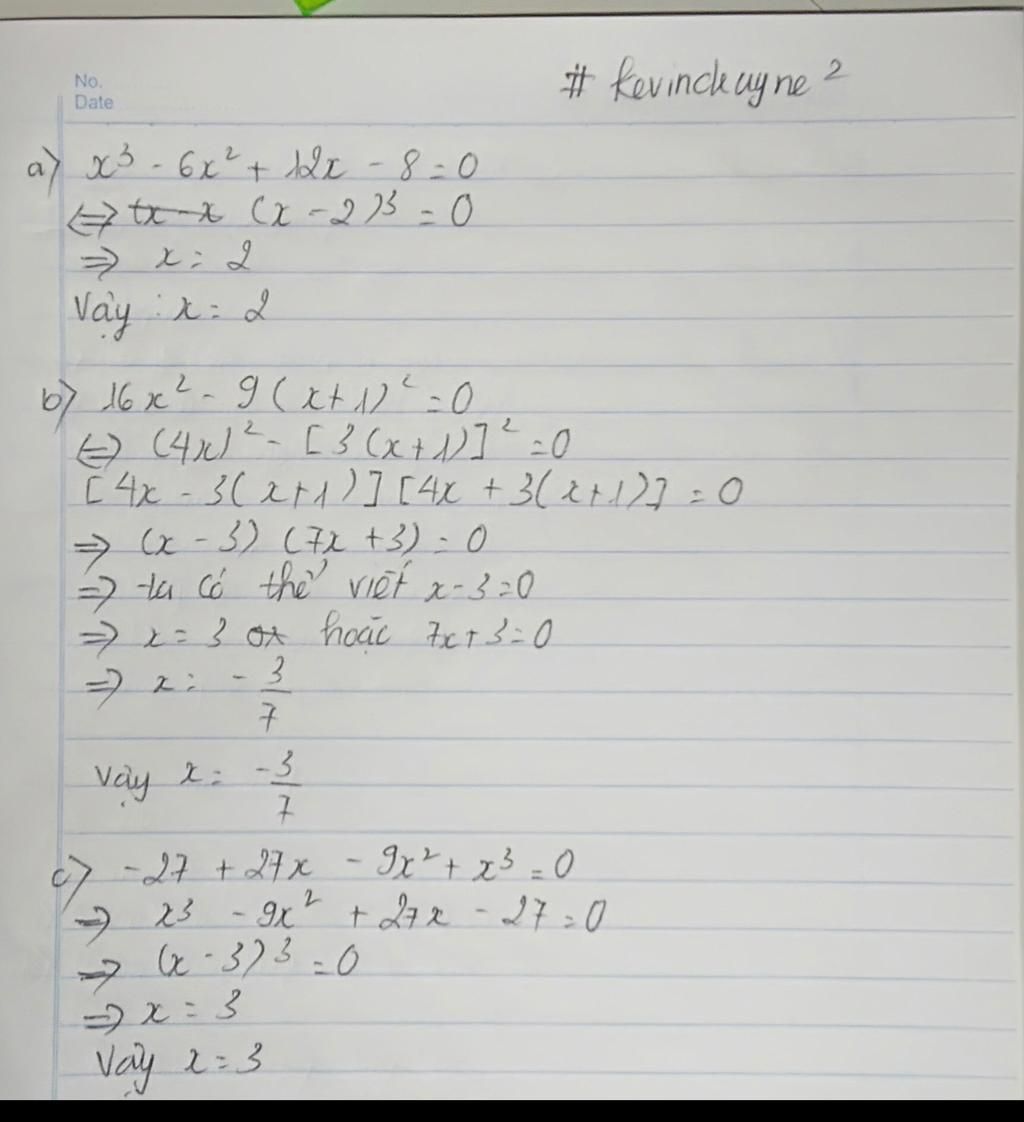 No.
Date
# kevinckayne²
a) x³ - 6x² + 12x - 8 = 0
⇔ (x - 2)³ = 0
⇒ x = 2
Vậy : x = 2
b) 16x² - 9(x+1)² = 0
⇔ (4x)² - [3(x+1)]² = 0
[4x - 3(x+1)][4x + 3(x+1)] = 0
⇒ (x - 3) (7x + 3) = 0
⇒ ta có thể viết x - 3 = 0
⇒ x = 3 hoặc 7x + 3 = 0
⇒ x = - 3/7
Vậy x = -3/7
c) -27 + 27x - 9x² + x³ = 0
⇒ x³ - 9x² + 27x - 27 = 0
⇒ (x - 3)³ = 0
⇒ x = 3
Vậy x = 3